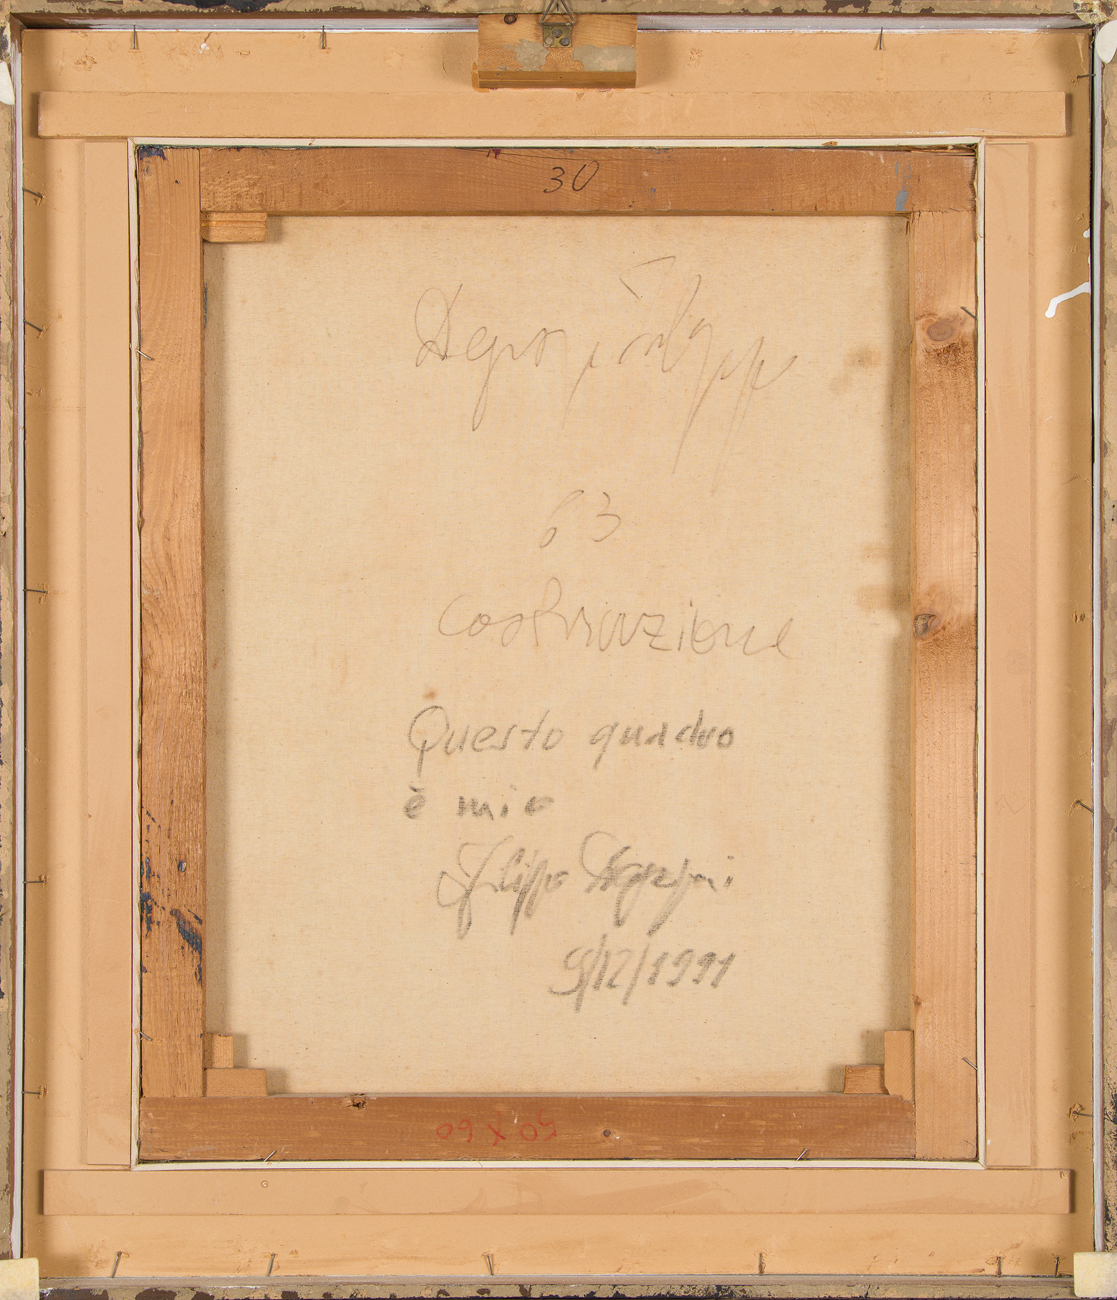 30
Degasperi Filippo
63
Costruzione
Questo quadro
è mio
Filippo Degasperi
9/12/1991
50 x 60